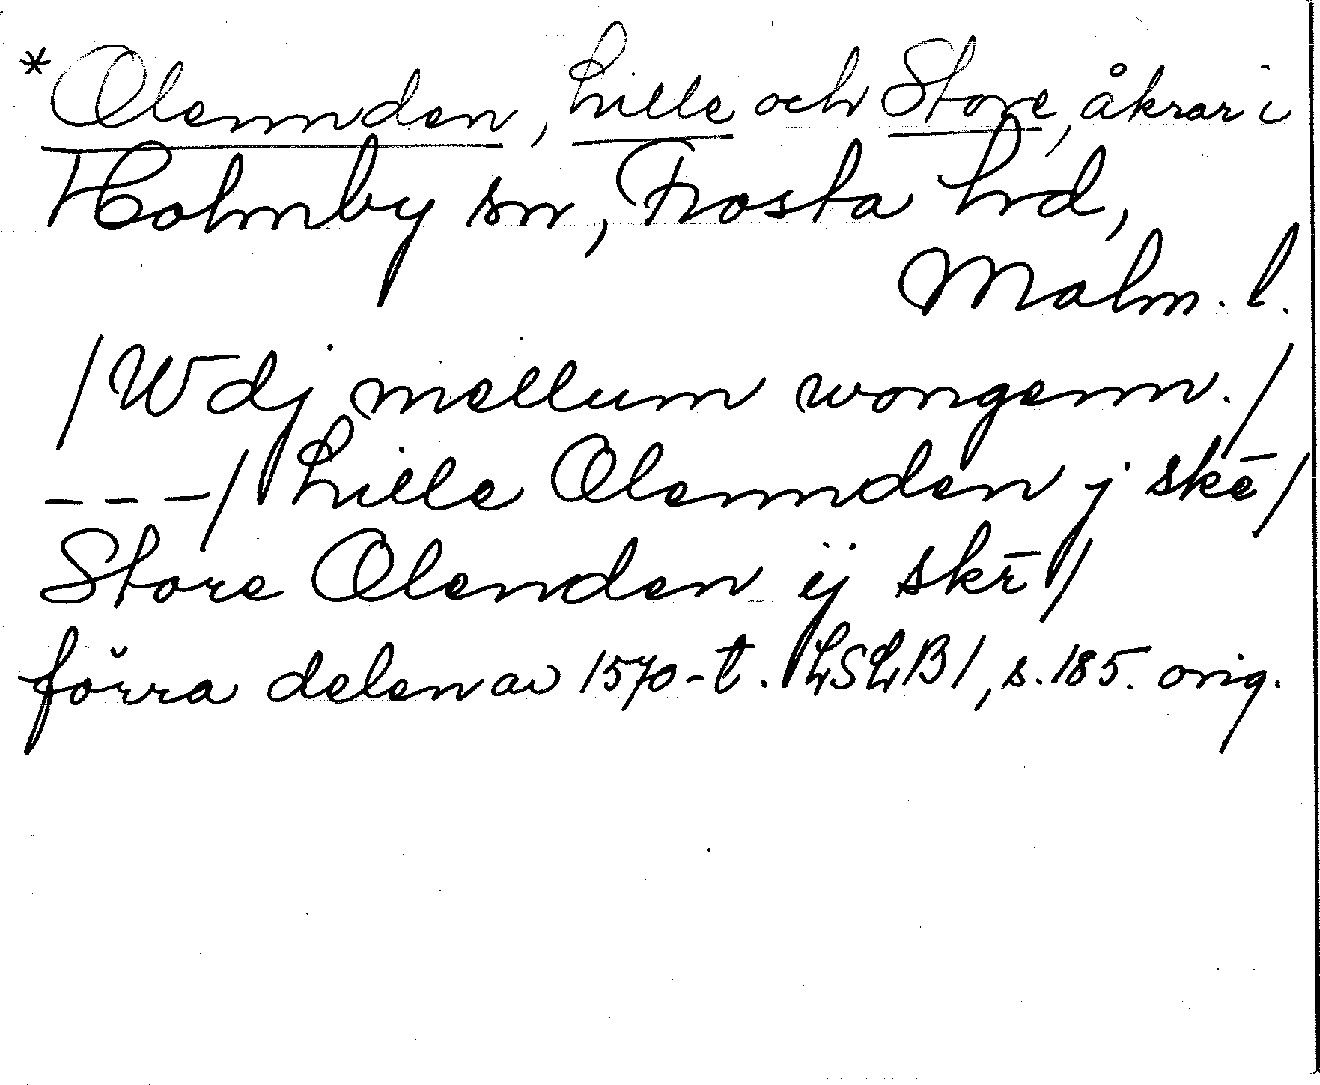 *Olennden, Lille och Store, åkrar i
Holmby sn, Frosta hd,
Malm. l.
/Wdj mellum wongenn./
---/ Lille Olennden j skē/
Store Olenden ij skē /
förra delen av 1570-t. LSLB1, s. 185. orig.